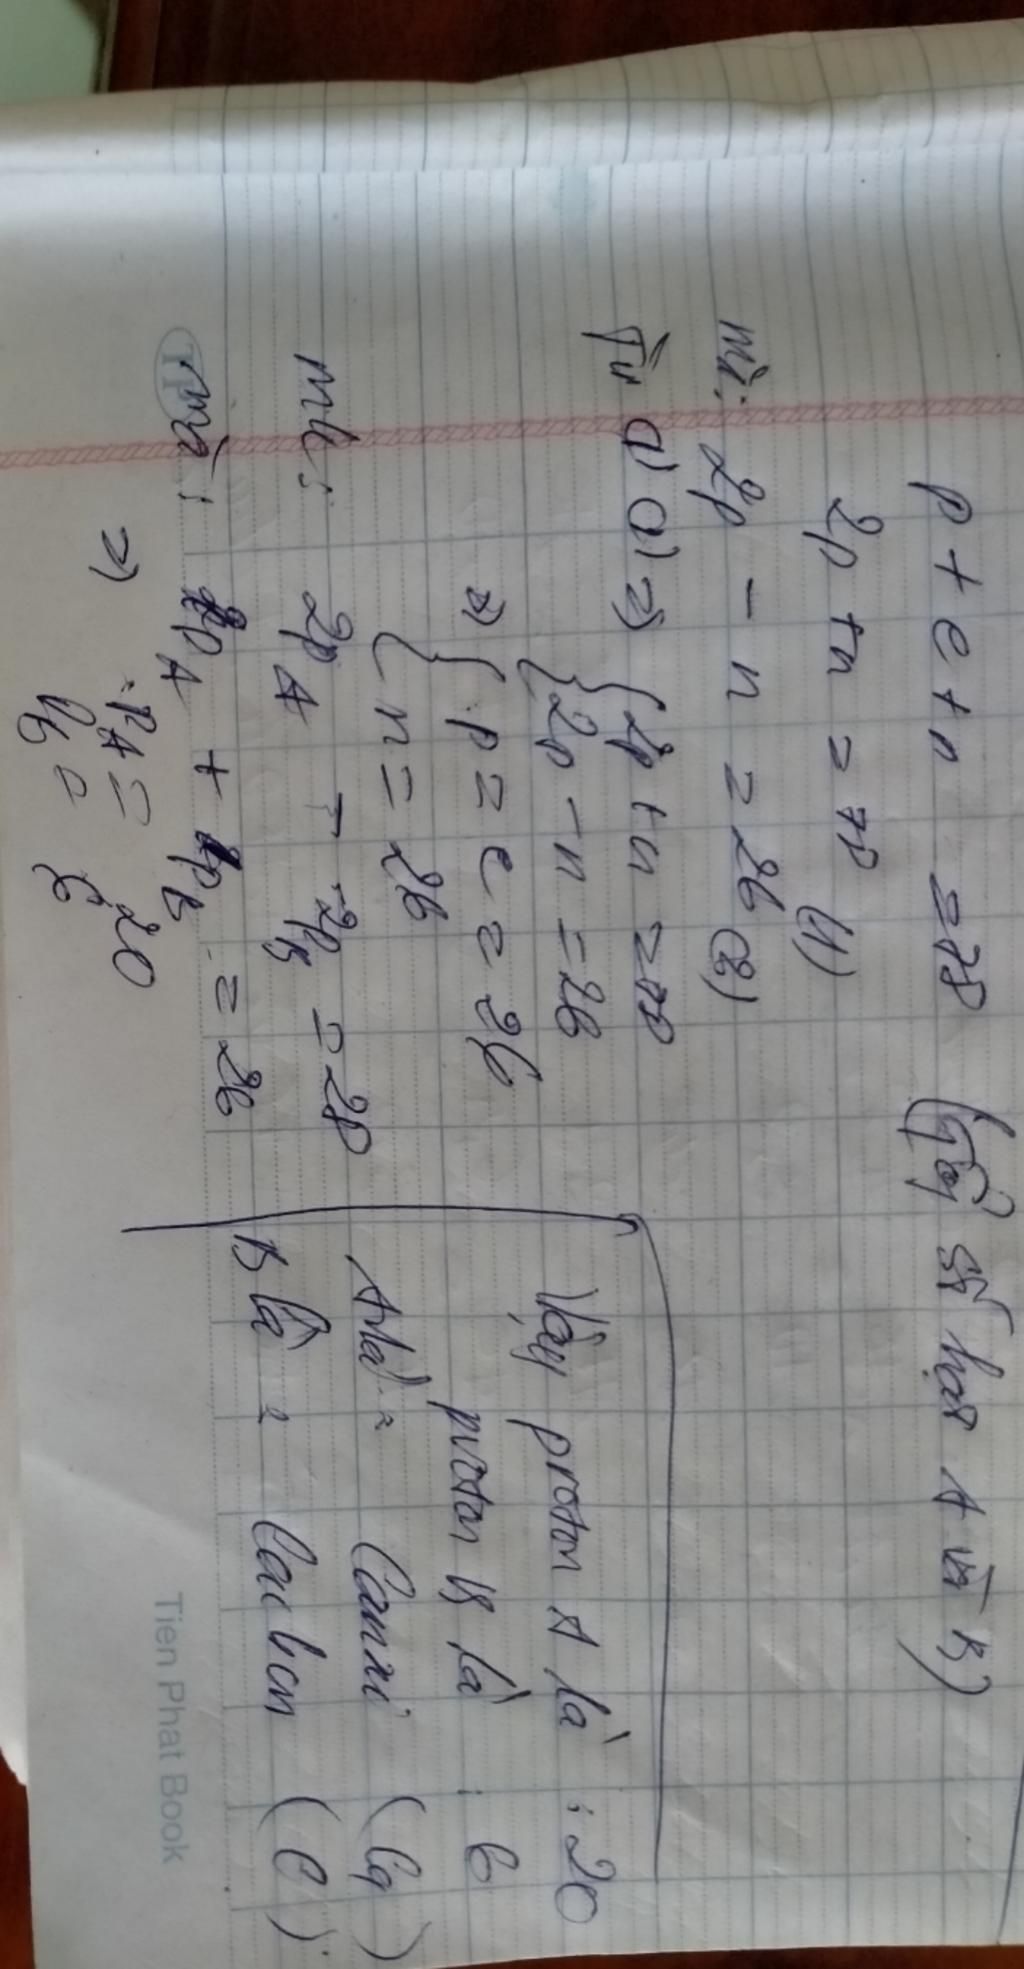 p + e + n = 78 (Tổng số hạt A và B)
2p + n = 78 (1)
mà: 2p - n = 26 (2)
Từ (1) (2) => { 2p + n = 78
{ 2p - n = 26
=> { p = e = 26
{ n = 26
mk: 2pA - 2pB = 28
mà: pA + pB = 26
=> PA = 20
PB = 6
Vậy proton A là : 20
proton B là : 6
A là : Canxi (Ca)
B là : Cacbon (C).
Tien Phat Book